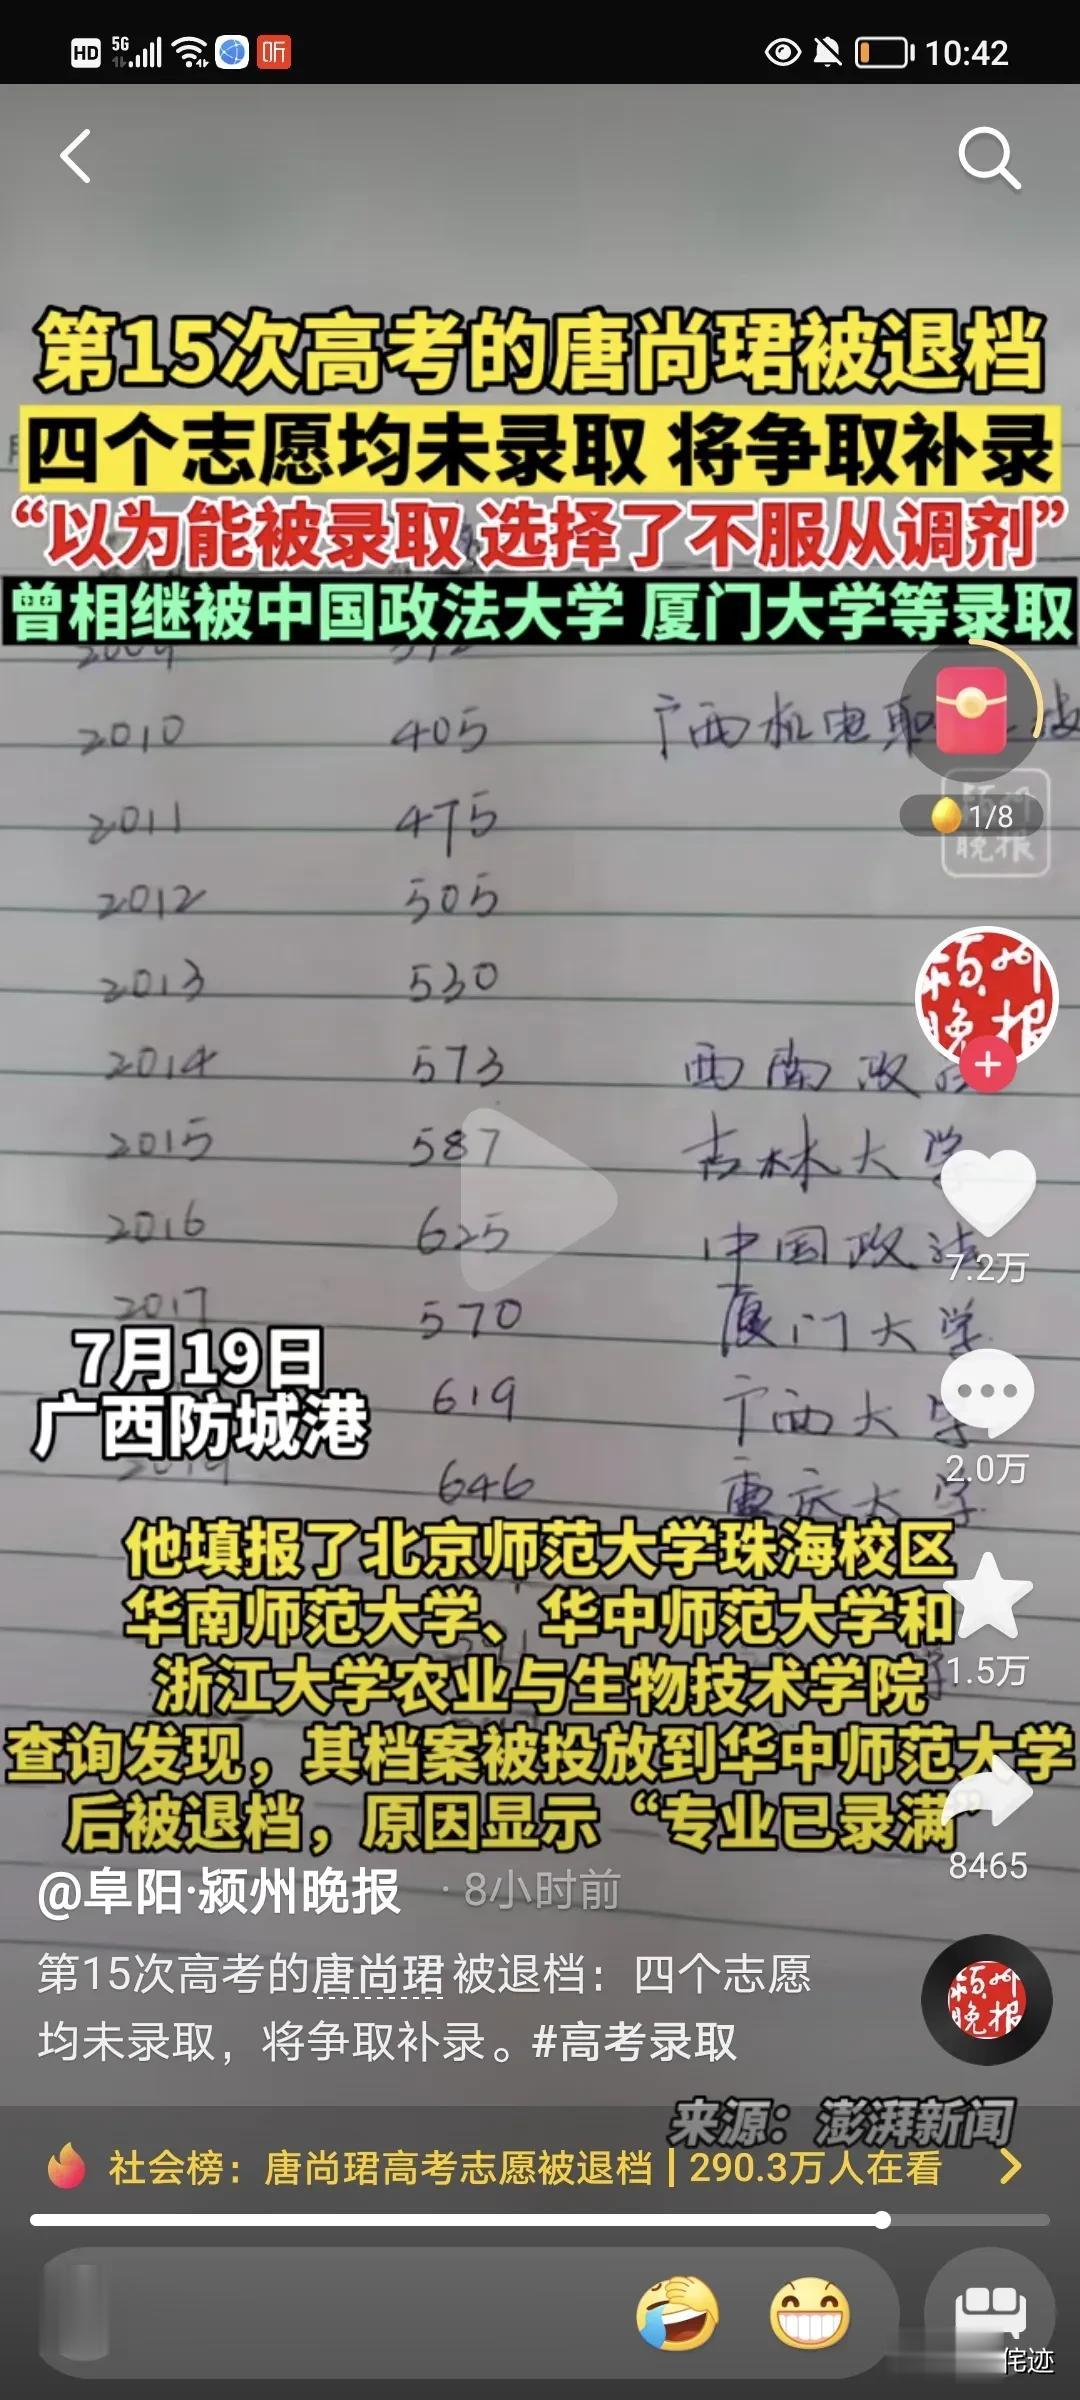 HD 5G 听 10:42
第15次高考的唐尚珺被退档
四个志愿均未录取 将争取补录
“以为能被录取 选择了不服从调剂”
曾相继被中国政法大学 厦门大学等录取
2009 372
2010 405 广西机电职
2011 475
1/8
颍州
晚报
2012 505
2013 530
颍州
晚报
2014 573 西南政
2015 587 吉林大学
2016 625 中国政法
7.2万
2017 570 厦门大学
7月19日
广西防城港
619 广西大学
2.0万
2019 646 重庆大学
他填报了北京师范大学珠海校区
华南师范大学、华中师范大学和
浙江大学农业与生物技术学院
1.5万
查询发现，其档案被投放到华中师范大学
后被退档，原因显示“专业已录满”
8465
@阜阳·颍州晚报 · 8小时前
第15次高考的唐尚珺被退档：四个志愿
均未录取，将争取补录。#高考录取
颍州
晚报
来源：澎湃新闻
社会榜：唐尚珺高考志愿被退档 | 290.3万人在看
侘迹